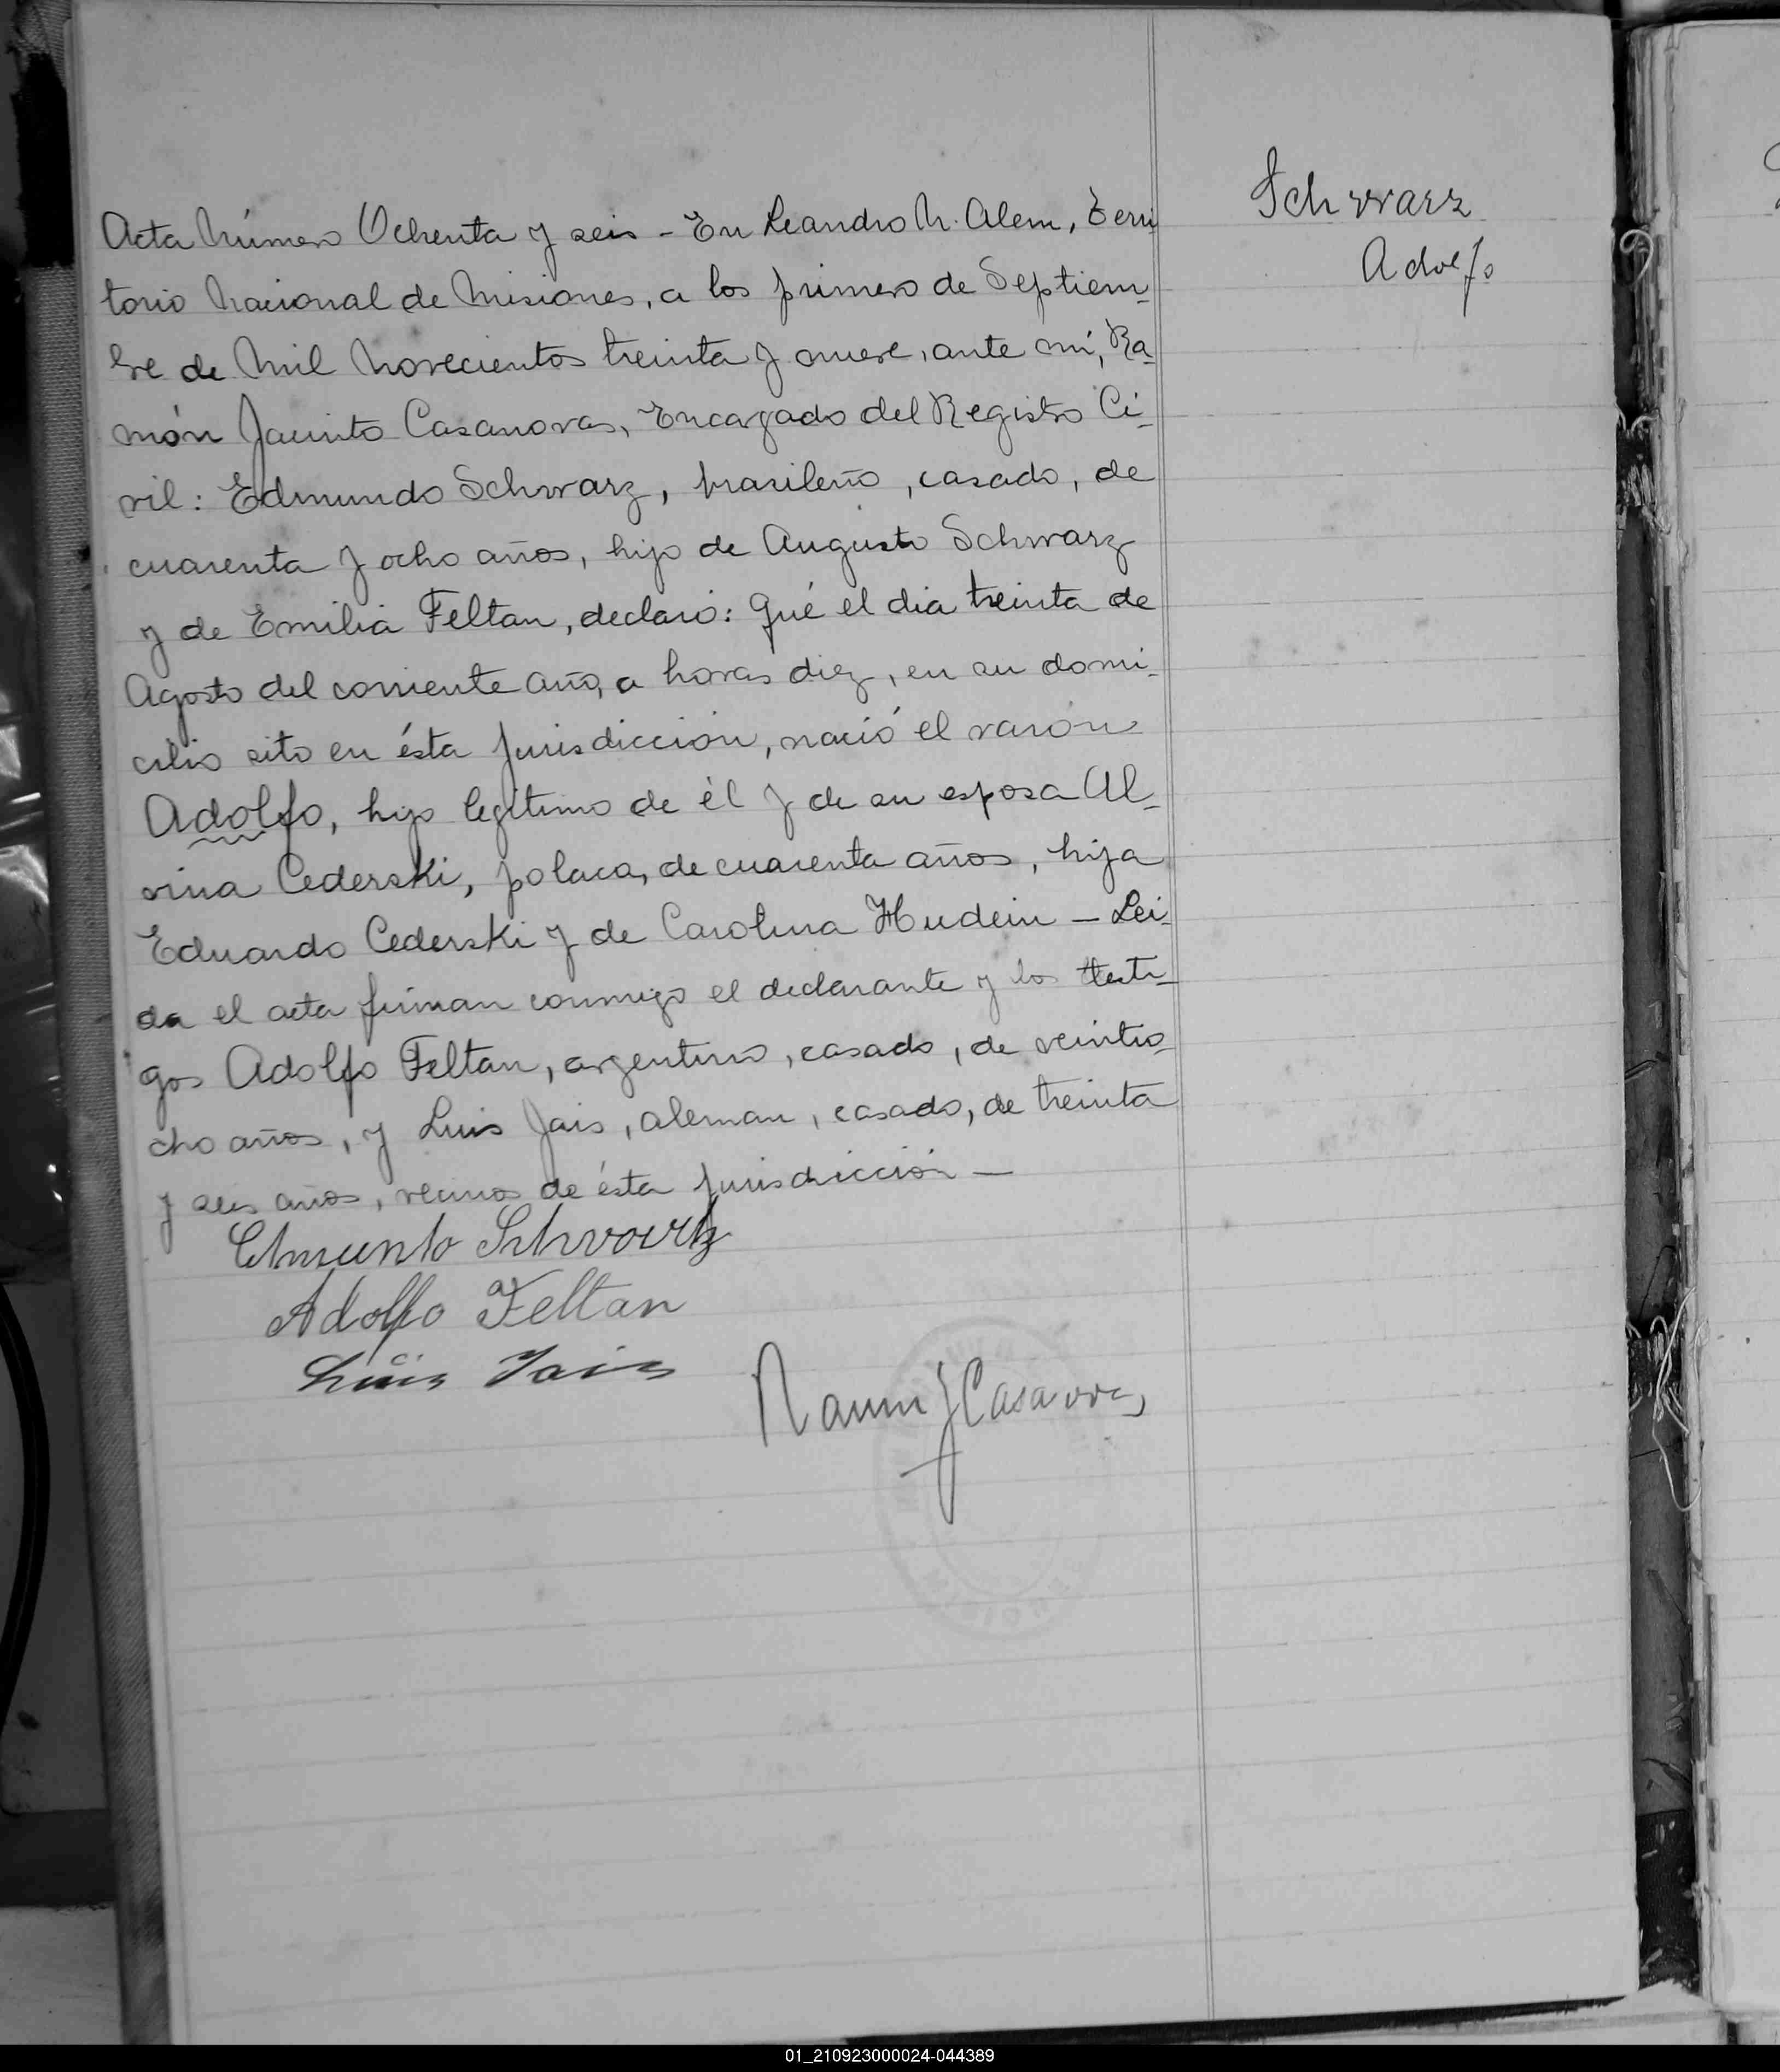 Schwarz
Adolfo
Acta Número Ochenta y seis - En Leandro N. Alem, Terri
torio Nacional de Misiones, a los primero de Septiem-
bre de Mil Novecientos treinta y nueve, ante mí, Ra-
món Jacinto Casanovas, Encargado del Registro Ci-
vil: Edmundo Schwarz, brasileño, casado, de
cuarenta y ocho años, hijo de Augusto Schwarz
y de Emilia Feltan, declaró: Qué el dia treinta de
Agosto del corriente año, a horas diez, en su domi-
cilio sito en ésta Jurisdicción, nació el varón
Adolfo, hijo legítimo de él y de su esposa Al-
vina Cederski, polaca, de cuarenta años, hija
Eduardo Cederski y de Carolina Hudein - Lei-
da el acta firman conmigo el declarante y los testi-
gos Adolfo Feltan, argentino, casado, de veintio-
cho años, y Luis Jais, aleman, casado, de treinta
y seis años, vecinos de ésta Jurisdicción -
Schwartz
Adolfo Feltan
Luis Jais
Ramón J Casanovas
01_210923000024-044389